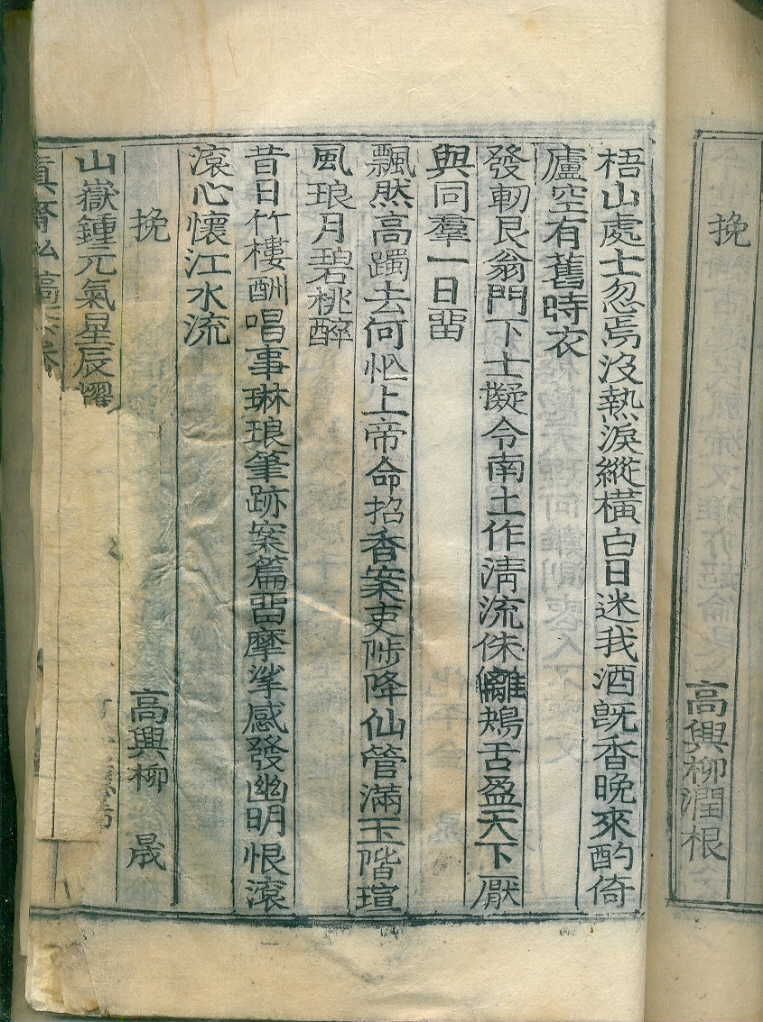 挽
高興柳潤根
梧山處士忽焉沒熱淚縱橫白日迷我酒旣香晩來酌倚
廬空有舊時衣
發軔艮翁門下士擬令南土作淸流侏離鴂舌盈天下厭
與同羣一日畱
飄然高躅去何忙上帝命招香案吏陟降仙管滿玉階瑄
風琅月碧桃醉
昔日竹樓酬唱事琳琅筆跡案篇畱摩挲感發幽明恨滾
滾心懷江水流
挽
高興柳 晟
山嶽鍾元氣星辰耀